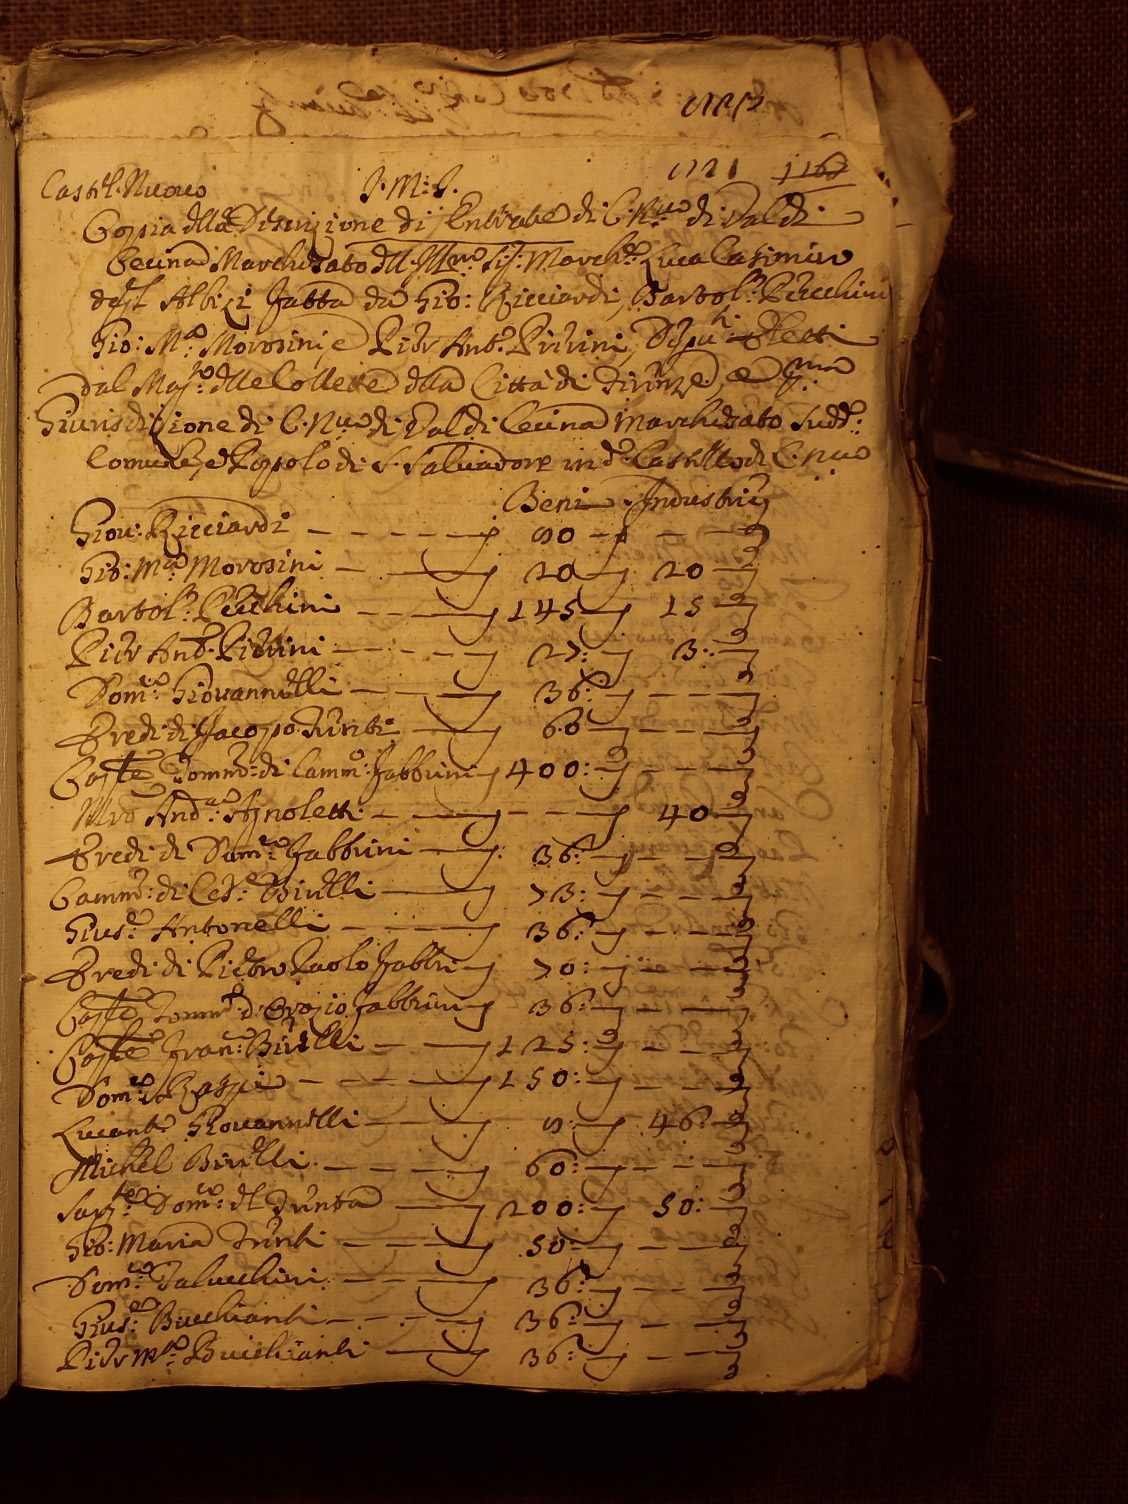 1721 1168
Castel Nuovo J. M: J.
Copia della Descrizione di Entrate di C. Nuo di Val di
Cecina Marchesato dell Illmo Sig: Marche Luca Casimiro
degl Albizi fatta da Gio: Ricciardi, Bartolo Pecchini
Gio: Ma Morosini, e Pietr Anto. Pierini Eletti
dal Mag: delle Collette della Città di Firenze, e
Giurisdizione di C. Nuo di Val di Cecina Marchesato Sudd:
Comune, e Popolo di S. Salvadore in do Castello di C. Nuo
Beni Industrie
Giov: Ricciardi 90
Gio: Ma Morosini 20 20
Bartolo Pecchini 145 15
Pietr Anto. Pierini 27: 3:
Domco Giovannelli 36:
Eredi di Jacopo Funti 60
Tommo: di Cammo: Fabbrini 400:
Mro Anda: Agnoletti 40
Eredi di Domco Fabbrini 36:
Cammo: di Ces: Birelli 73:
Giuse Antonelli 36:
Eredi di Pietro Paolo Fabbri 70:
Tommo d Orazio Fabbrini 36:
Franco: Birelli 125:
Domco Raspi 150:
Lucanto Giovannelli 9: 46:
Michel Birelli 60:
Domco: del Funta 200: 50:
Gio: Maria Funti 50:
Domco Salvechini 36:
Giuse Bucchianti 36:
Pietr Mra Bucchianti 36: